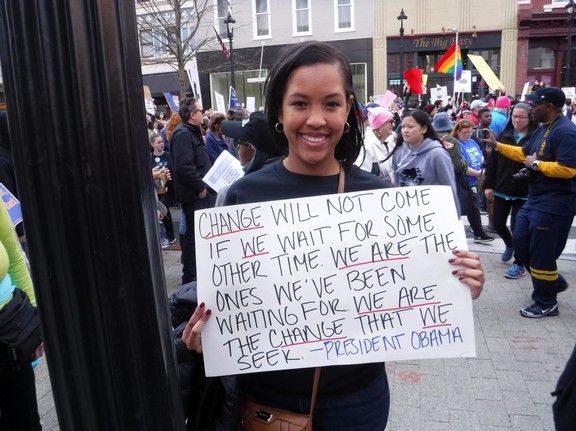 The Big Easy
CHANGE WILL NOT COME
IF WE WAIT FOR SOME
OTHER TIME. WE ARE THE
ONES WE'VE BEEN
WAITING FOR. WE ARE
THE CHANGE THAT WE
SEEK. —PRESIDENT OBAMA